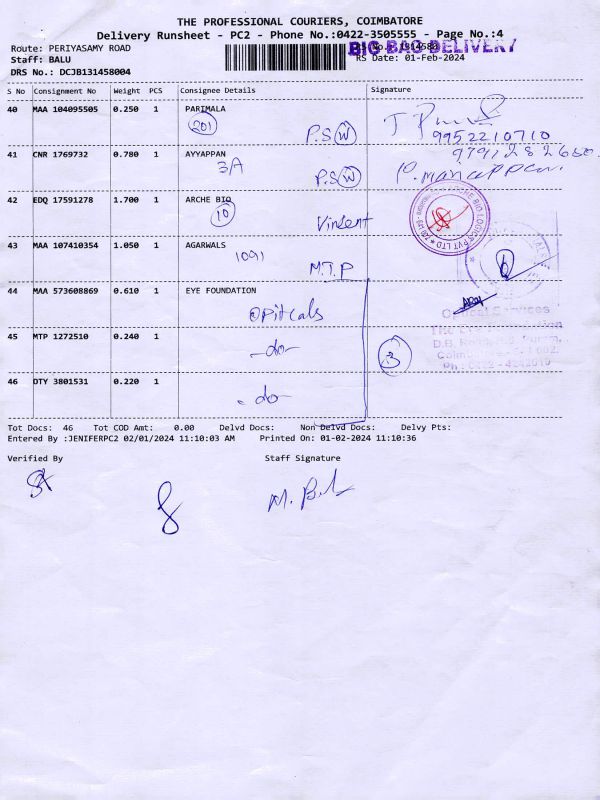 THE PROFESSIONAL COURIERS, COIMBATORE
Delivery Runsheet - PC2 - Phone No.:0422-3505555 - Page No.:4
Route: PERIYASAMY ROAD
BIG BAG DELIVERY
Staff: BALU
RS Date: 01-Feb-2024
DRS No.: DCJB131458004
S No Consignment No Weight PCS Consignee Details Signature
40 MAA 104095505 0.250 1 PARIMALA
201 P.S(W)
9952210710
41 CNR 1769732 0.780 1 AYYAPPAN
3A P.S(W)
42 EDQ 17591278 1.700 1 ARCHE BIO
10 Vincent
43 MAA 107410354 1.050 1 AGARWALS
1091 M.T.P
44 MAA 573608869 0.610 1 EYE FOUNDATION
Opticals
45 MTP 1272510 0.240 1
-do-
3
46 DTY 3801531 0.220 1
-do-
Optical Services
Tot Docs: 46 Tot COD Amt: 0.00 Delvd Docs: Non Delvd Docs: Delvy Pts:
Entered By :JENIFERPC2 02/01/2024 11:10:03 AM Printed On: 01-02-2024 11:10:36
Verified By Staff Signature